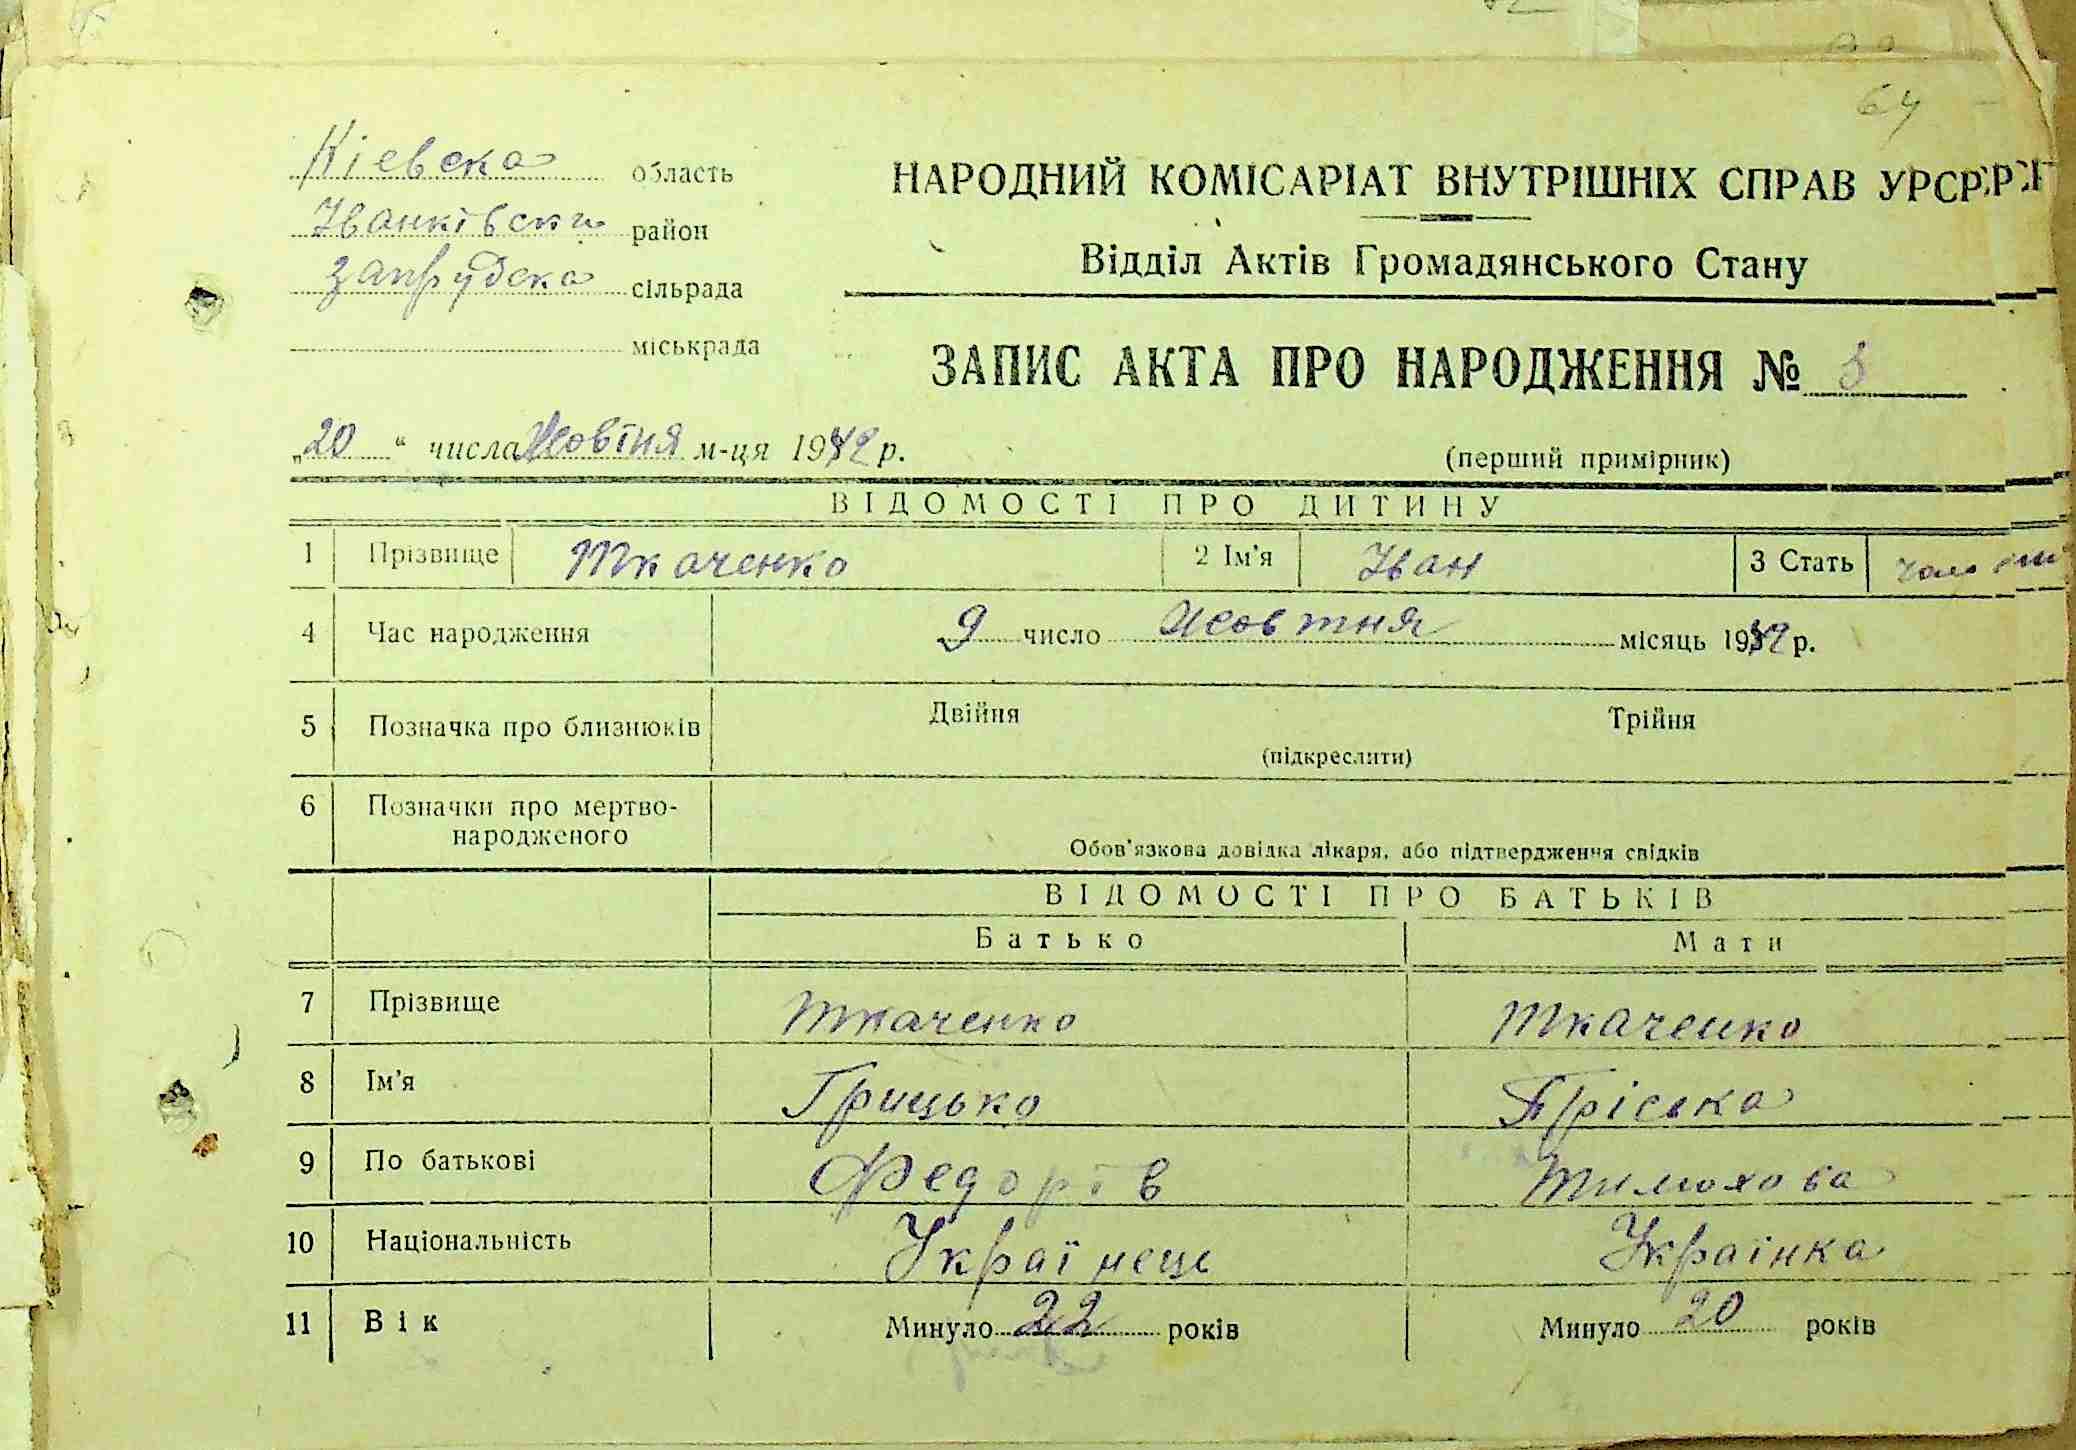 64
Кіевска область
Іванківски район
Запрудска сільрада
міськрада
НАРОДНИЙ КОМІСАРІАТ ВНУТРІШНІХ СПРАВ УРСР
Відділ Актів Громадянського Стану
ЗАПИС АКТА ПРО НАРОДЖЕННЯ № 8
„20“ числа Жовтня м-ця 1942 р.
(перший примірник)
ВІДОМОСТІ ПРО ДИТИНУ
1 Прізвище Ткаченко 2 Ім'я Іван 3 Стать
4 Час народження 9 число Жовтня місяць 1942 р.
5 Позначка про близнюків Двійня Трійня
(підкреслити)
6 Позначки про мертво-
народженого
Обов'язкова довідка лікаря, або підтвердження свідків
ВІДОМОСТІ ПРО БАТЬКІВ
Батько Мати
7 Прізвище Ткаченко Ткаченко
8 Ім'я Грицько Пріська
9 По батькові Федорів Тимохова
10 Національність Україпець Українка
11 Вік Минуло 22 років Минуло 20 років